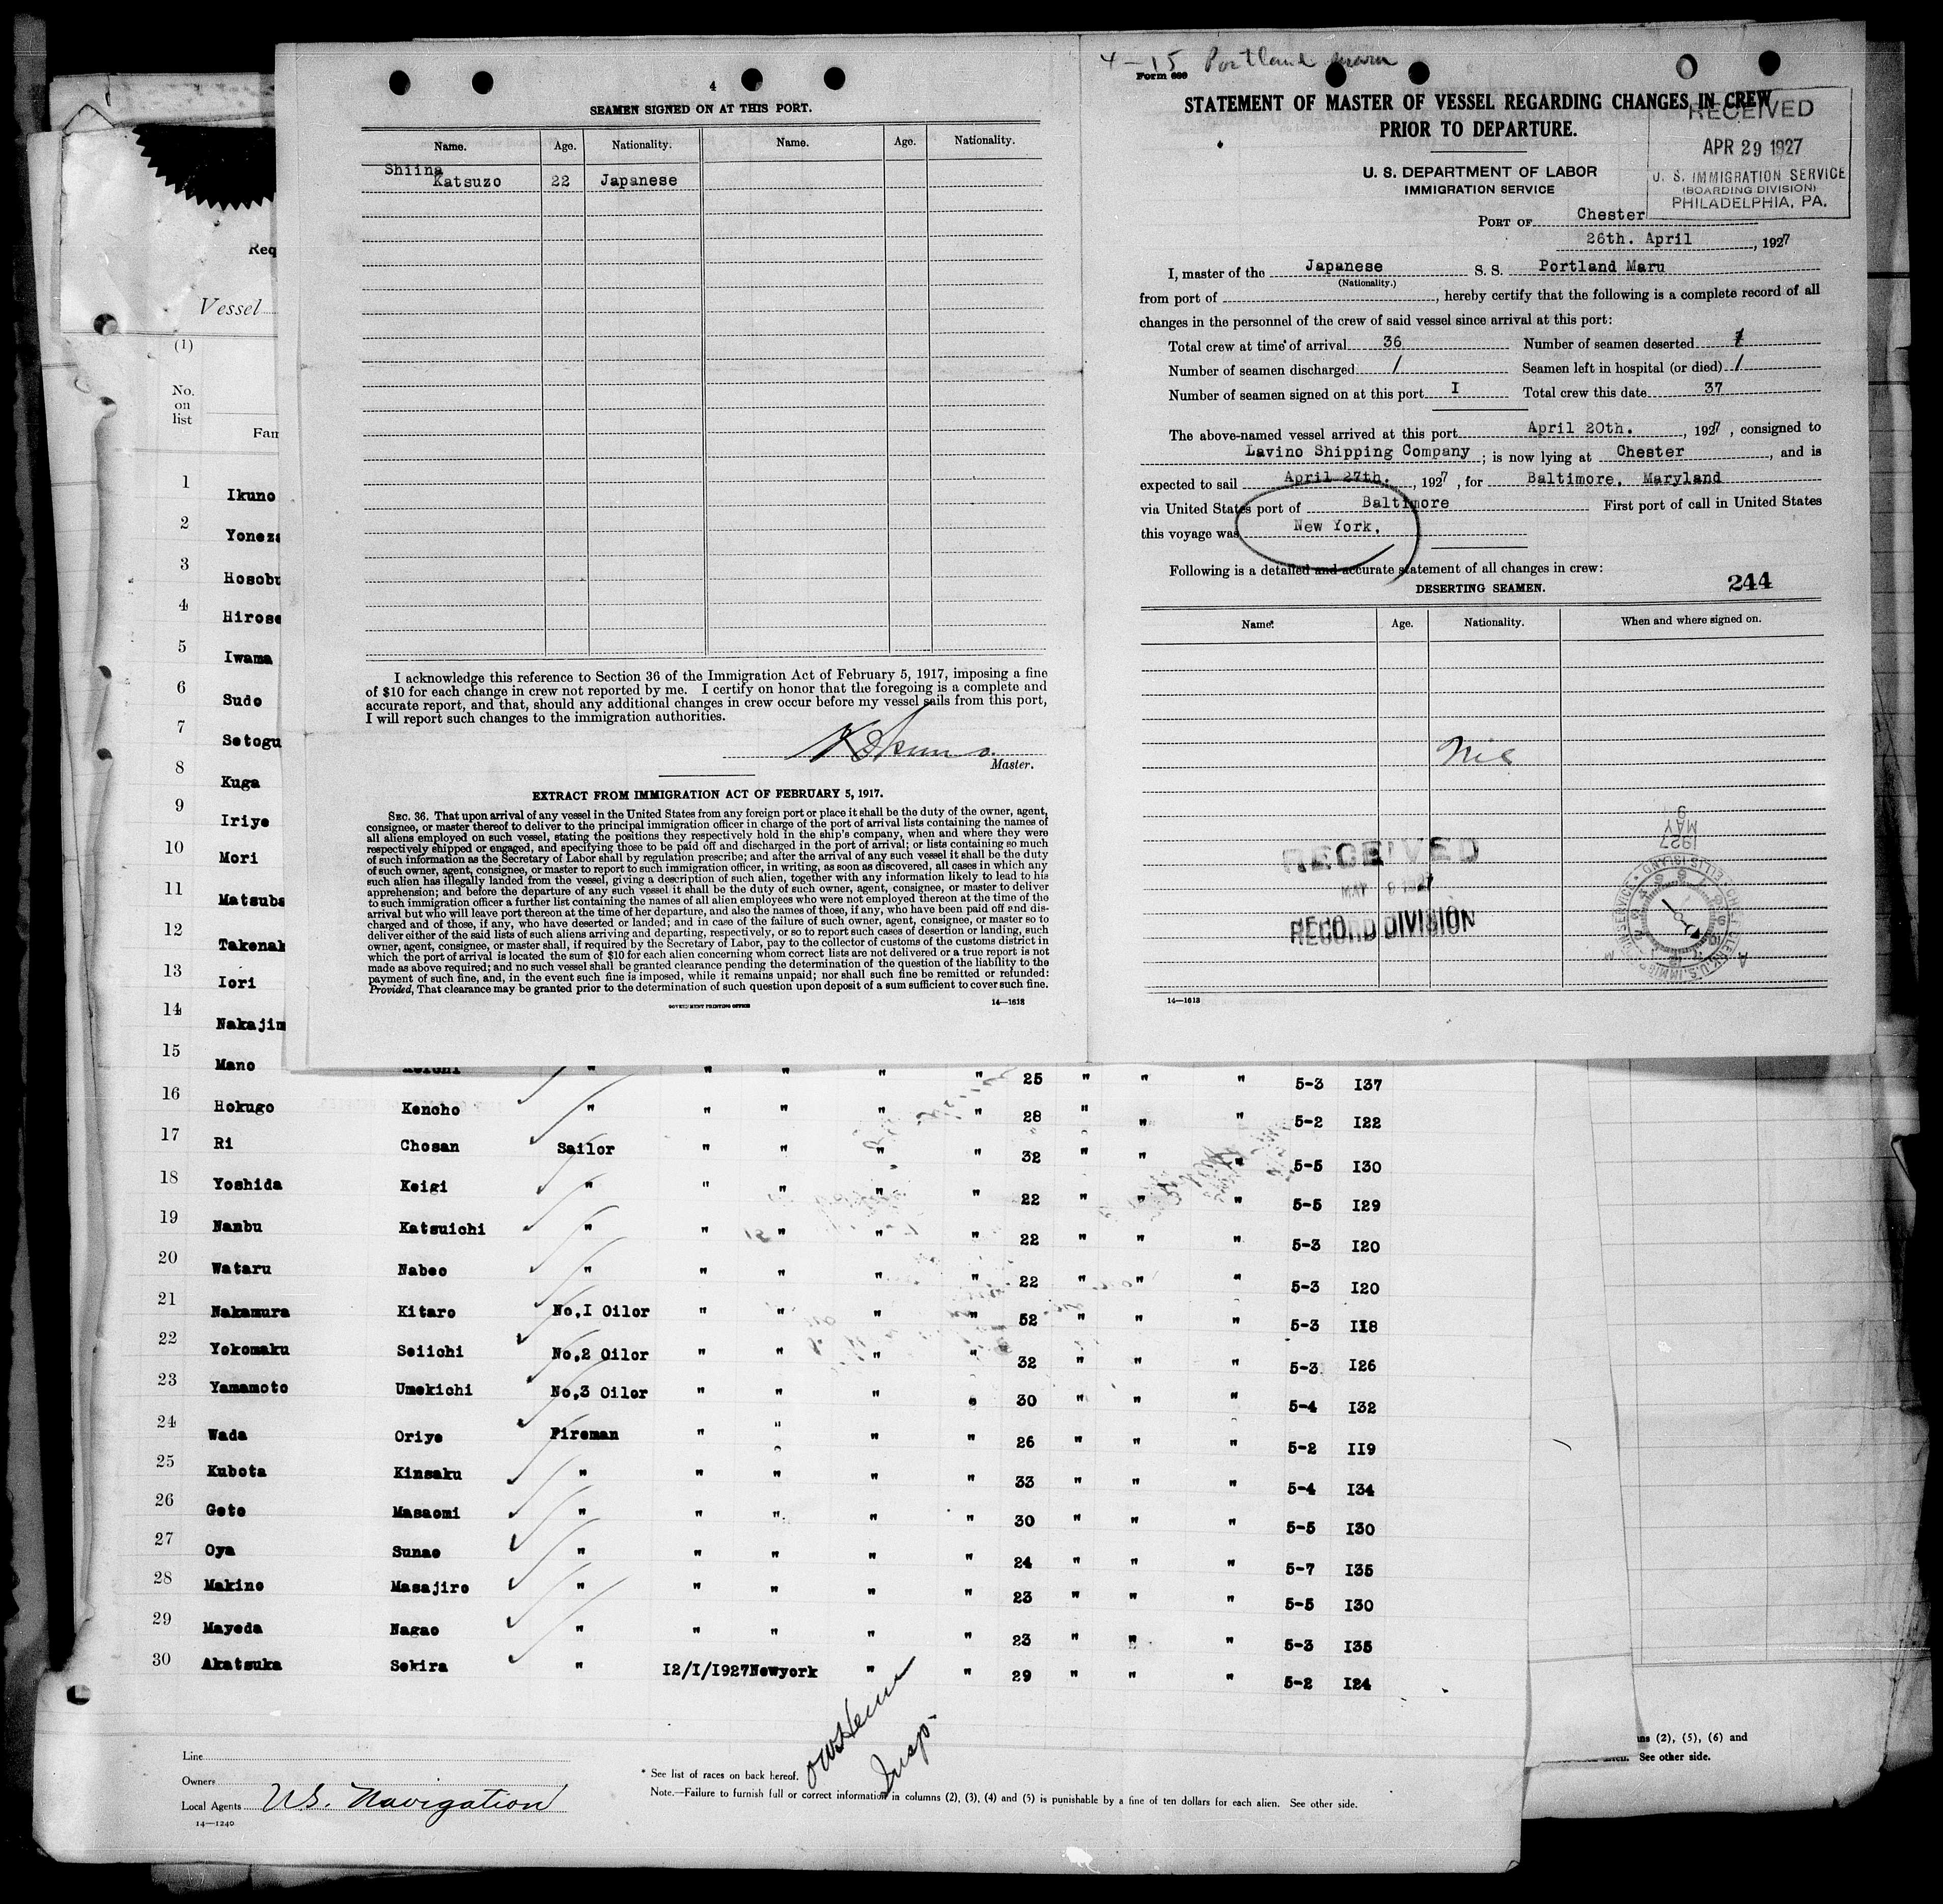 4
SEAMEN SIGNED ON AT THIS PORT.
Name. Age. Nationality. Name. Age. Nationality.
Shiina
Katsuzo 22 Japanese
I acknowledge this reference to Section 36 of the Immigration Act of February 5, 1917, imposing a fine
of $10 for each change in crew not reported by me. I certify on honor that the foregoing is a complete and
accurate report, and that, should any additional changes in crew occur before my vessel sails from this port,
I will report such changes to the immigration authorities.
Master.
EXTRACT FROM IMMIGRATION ACT OF FEBRUARY 5, 1917.
SEC. 36. That upon arrival of any vessel in the United States from any foreign port or place it shall be the duty of the owner, agent,
consignee, or master thereof to deliver to the principal immigration officer in charge of the port of arrival lists containing the names of
all aliens employed on such vessel, stating the positions they respectively hold in the ship's company, when and where they were
respectively shipped or engaged, and specifying those to be paid off and discharged in the port of arrival; or lists containing so much
of such information as the Secretary of Labor shall by regulation prescribe; and after the arrival of any such vessel it shall be the duty
of such owner, agent, consignee, or master to report to such immigration officer, in writing, as soon as discovered, all cases in which any
such alien has illegally landed from the vessel, giving a description of such alien, together with any information likely to lead to his
apprehension; and before the departure of any such vessel it shall be the duty of such owner, agent, consignee, or master to deliver
to such immigration officer a further list containing the names of all alien employees who were not employed thereon at the time of the
arrival but who will leave port thereon at the time of her departure, and also the names of those, if any, who have been paid off and dis-
charged and of those, if any, who have deserted or landed; and in case of the failure of such owner, agent, consignee, or master so to
deliver either of the said lists of such aliens arriving and departing, respectively, or so to report such cases of desertion or landing, such
owner, agent, consignee, or master shall, if required by the Secretary of Labor, pay to the collector of customs of the customs district in
which the port of arrival is located the sum of $10 for each alien concerning whom correct lists are not delivered or a true report is not
made as above required; and no such vessel shall be granted clearance pending the determination of the question of the liability to the
payment of such fine, and, in the event such fine is imposed, while it remains unpaid; nor shall such fine be remitted or refunded:
Provided, That clearance may be granted prior to the determination of such question upon deposit of a sum sufficient to cover such fine.
GOVERNMENT PRINTING OFFICE 14—1613
4-15 Portland Maru
Form 689
STATEMENT OF MASTER OF VESSEL REGARDING CHANGES IN CREW
PRIOR TO DEPARTURE.
RECEIVED
APR 29 1927
U. S. IMMIGRATION SERVICE
(BOARDING DIVISION)
PHILADELPHIA, PA.
U. S. DEPARTMENT OF LABOR
IMMIGRATION SERVICE
PORT OF Chester
26th. April, 1927
I, master of the Japanese S. S. Portland Maru
(Nationality.)
from port of , hereby certify that the following is a complete record of all
changes in the personnel of the crew of said vessel since arrival at this port:
Total crew at time of arrival 36 Number of seamen deserted /
Number of seamen discharged / Seamen left in hospital (or died) /
Number of seamen signed on at this port I Total crew this date 37
The above-named vessel arrived at this port April 20th. , 1927 , consigned to
Lavino Shipping Company ; is now lying at Chester , and is
expected to sail April 27th. , 1927 , for Baltimore, Maryland
via United States port of Baltimore First port of call in United States
this voyage was New York.
Following is a detailed and accurate statement of all changes in crew:
DESERTING SEAMEN. 244
Name. Age. Nationality. When and where signed on.
Nil
RECEIVED
MAY 9 1927
RECORD DIVISION
MAY 9 1927
14—1613
Req
Vessel
(1)
No.
on
list
Fam
1 Ikuno
2 Yoneza
3 Hosobu
4 Hirose
5 Iwama
6 Sudo
7 Setogu
8 Kuga
9 Iriye
10 Mori
11 Matsuba
12 Takenak
13 Iori
14 Nakajim
15 Mano Koichi " " " " " 25 " " " 5-3 I37
16 Hokugo Kencho " " " " " 28 " " " 5-2 I22
17 Ri Chosan Sailor " " " " 32 " " " 5-5 I30
18 Yoshida Keigi " " " " " 22 " " " 5-5 I29
19 Nanbu Katsuichi " " " " " 22 " " " 5-3 I20
20 Wataru Nabeo " " " " " 22 " " " 5-3 I20
21 Nakamura Kitaro No,I Oilor " " " " 52 " " " 5-3 II8
22 Yokomaku Seiichi No,2 Oilor " " " " 32 " " " 5-3 I26
23 Yamamoto Umekichi No,3 Oilor " " " " 30 " " " 5-4 I32
24 Wada Oriye Fireman " " " " 26 " " " 5-2 II9
25 Kubota Kinsaku " " " " " 33 " " " 5-4 I34
26 Goto Masaomi " " " " " 30 " " " 5-5 I30
27 Oya Sunao " " " " " 24 " " " 5-7 I35
28 Makino Masajiro " " " " " 23 " " " 5-5 I30
29 Mayeda Nagao " " " " " 23 " " " 5-3 I35
30 Akatsuka Sekira " I2/I/I927 Newyork " " 29 " " " 5-2 I24
Insp.
Line
Owners
Local Agents U.S. Navigation
14—1240
* See list of races on back hereof.
Note.—Failure to furnish full or correct information in columns (2), (3), (4) and (5) is punishable by a fine of ten dollars for each alien. See other side.
ns (2), (5), (6) and
See other side.